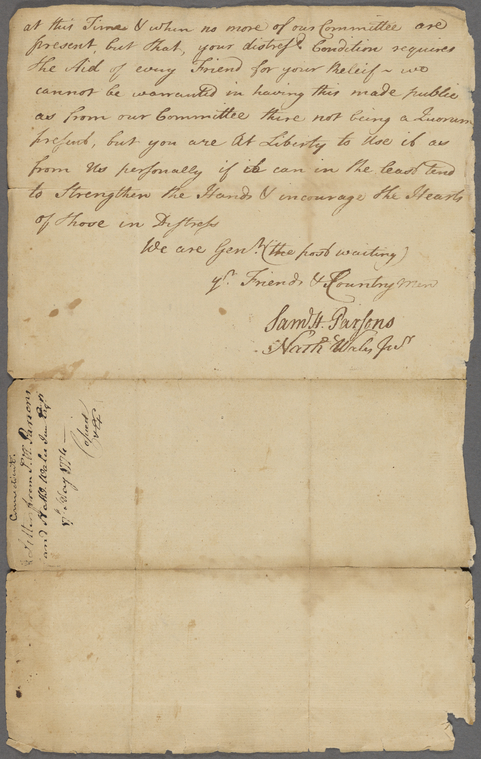 at this Time & when no more of our Committee are
present, but that, your distress'd Condition requires
the Aid of every Friend for your Releif ~ we
cannot be warranted in having this made public
as from our Committee there not being a Quorum
present, but you are At Liberty to Use it as
from Us personally if it can in the least tend
to Strengthen the Hands & encourage the Hearts
of those in Distress
We are Gent.n (the post waiting)
yr. Friends & Country men
Saml. H. Parsons
Nathl. Wales Junr
Connecticut
Letter from S. H. Parsons
and Nathl. Wales Jun Esqrs
May 1774
Copied